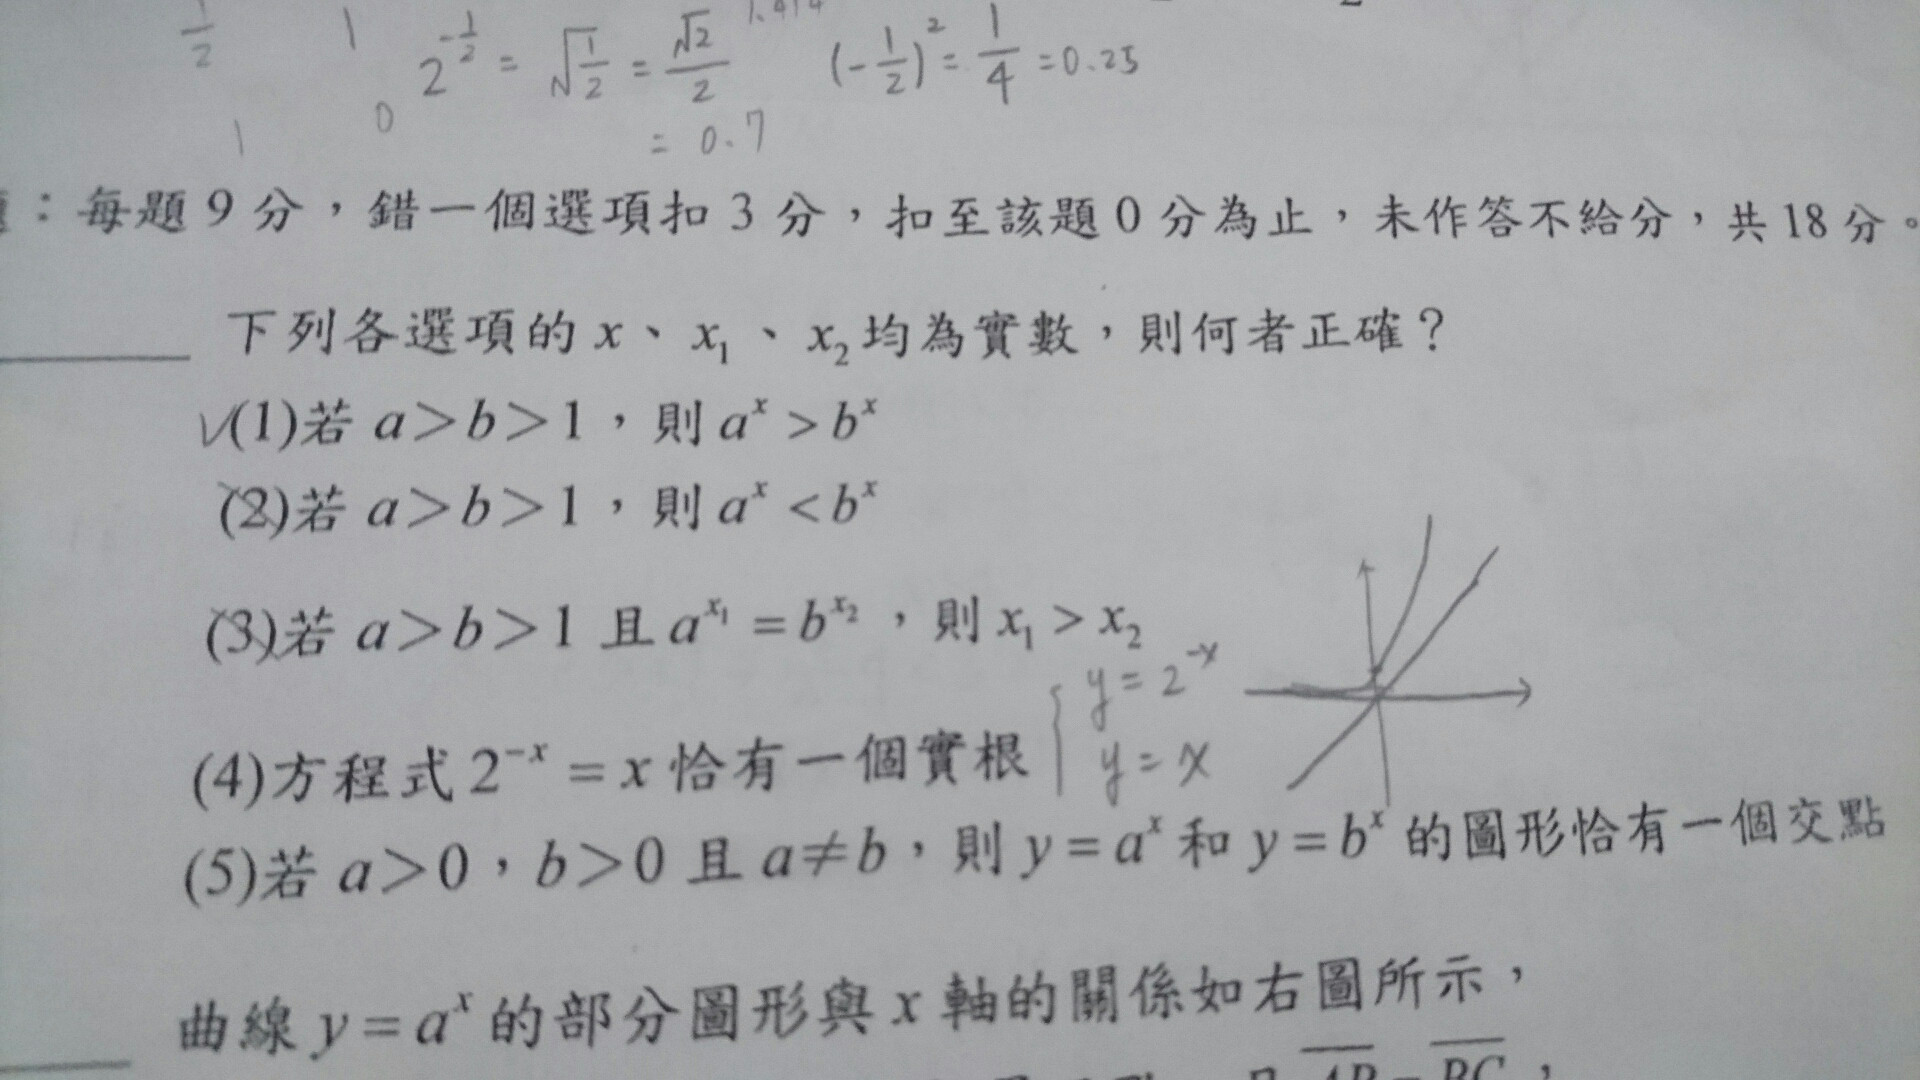 1/2 1 2^{-1/2} = √(1/2) = √2/2 1.414 (-1/2)² = 1/4 = 0.25
1 0 = 0.7
：每題 9 分，錯一個選項扣 3 分，扣至該題 0 分為止，未作答不給分，共 18 分。
下列各選項的 x、x₁、x₂ 均為實數，則何者正確？
✓(1)若 a＞b＞1，則 aˣ > bˣ
(2)若 a＞b＞1，則 aˣ < bˣ
(3)若 a＞b＞1 且 a^{x₁} = b^{x₂}，則 x₁ > x₂
y = 2^{-x}
(4)方程式 2^{-x} = x 恰有一個實根 y = x
(5)若 a＞0，b＞0 且 a≠b，則 y = aˣ 和 y = bˣ 的圖形恰有一個交點
曲線 y = aˣ 的部分圖形與 x 軸的關係如右圖所示，